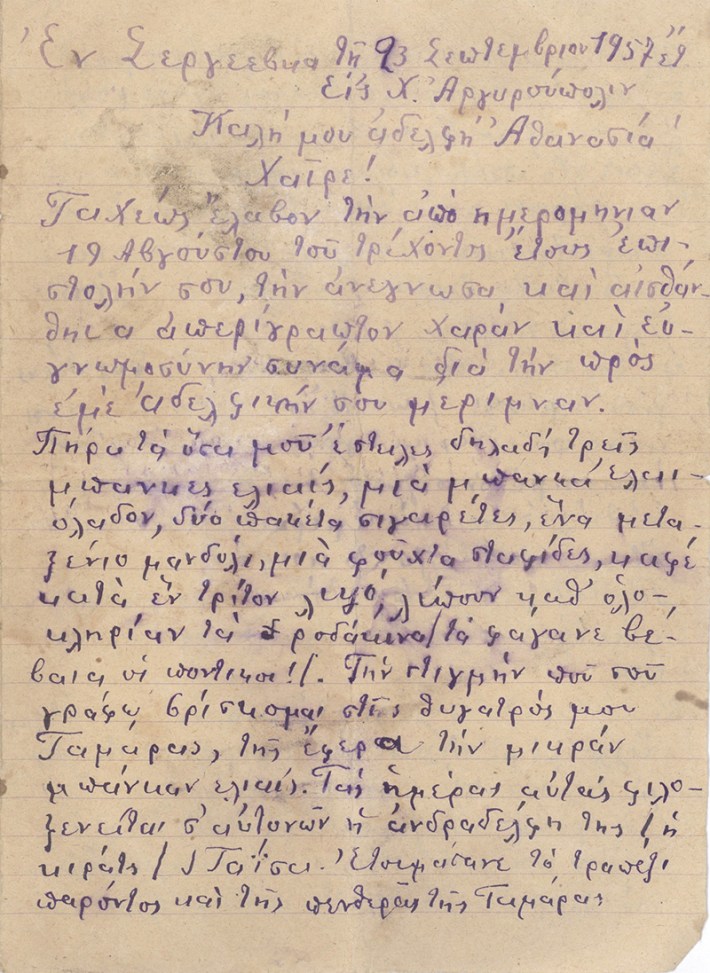 Ἐν Σεργεεβκα τῇ 23 Σεπτεμβριου 1957 ἔτ
Εἰς Χ. Ἀργυρούπολιν
Καλή μου ἀδελφὴ Ἀθανασία
Χαῖρε!
Ταχέως ἔλαβον τὴν ἀπὸ ημερομηνιαν
19 Αβγούστου τοῦ τρέχοντος ἔτους ἐπι-
στολήν σου, τὴν ἀνεγνωσα καὶ αἰσθάν-
θηκα ἀπερίγραπτον χαρὰν καὶ εὐ-
γνωμοσύνην συνάμα διὰ τὴν πρὸς
ἐμὲ ἀδελφικήν σου μεριμναν.
Πῆρα τὰ ὅσα μοῦ ἔστειλες δηλαδή τρεῖς
μπανκες ελιαίς, μιὰ μπανκά ἐλαι-
όλαδον, δύο πακέτα σιγαρέτες, ἕνα μετα-
ξένιο μανδύλι, μιὰ φοῦχτα σταφίδες, καφέ
κατὰ ἓν τρίτον λιγό, λείπουν καθ' ὁλο-
κληρίαν τὰ ροδάκινα/τὰ φάγανε βέ-
βαια οἱ ποντικοι!/. Τὴν στιγμὴν ποῦ σοῦ
γράφω βρίσκομαι στῆς θυγατρός μου
Ταμάρας, τῆς ἔφερα τὴν μικρὰν
μπάνκαν ελιαίς. Τὰς ἡμέρας αὐτάς φιλο-
ξενεῖται σ' αὐτονῶν ἡ ἀνδραδέλφη της /ἡ
κιράτς/ Ταΐσα. Ἑτοιμάσανε τὸ τραπέζι
παρόντος καὶ τῆς πενθερᾶς τῆς Ταμάρας